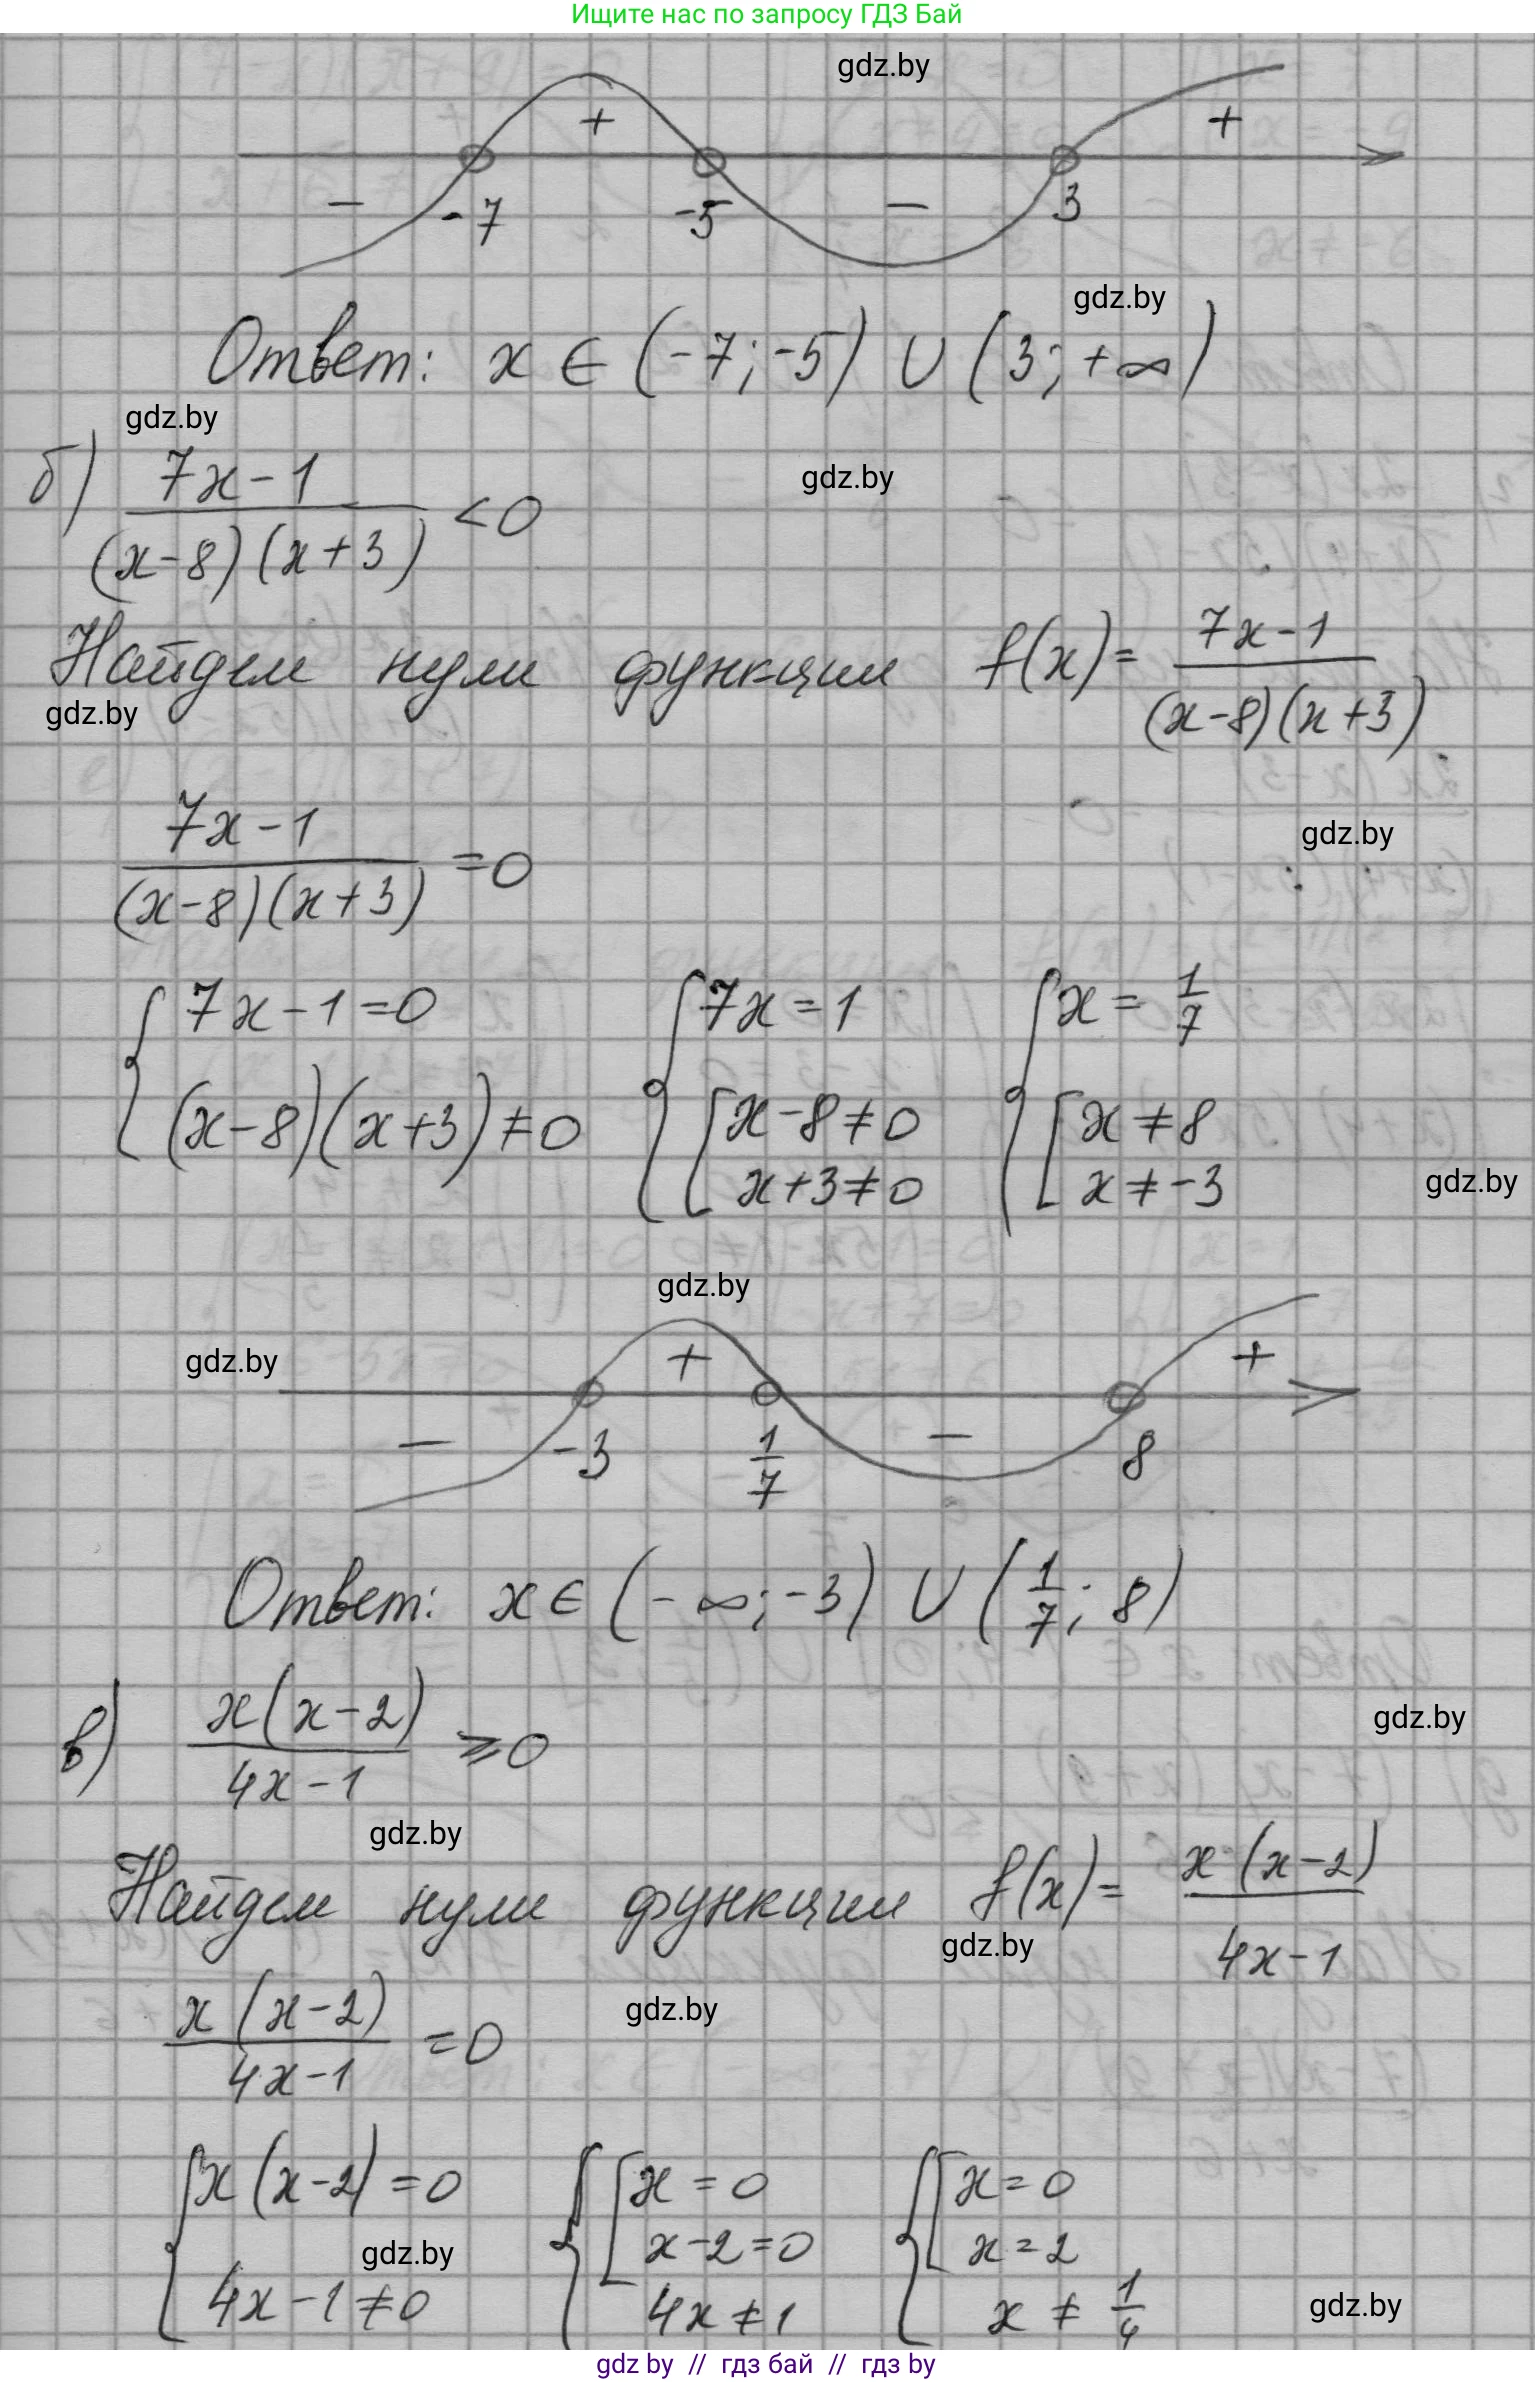 Ищите нас по запросу ГДЗ Бай
gdz.by
+ +
− -7 -5 − 3
gdz.by
Ответ: x ∈ (-7; -5) ∪ (3; +∞)
gdz.by
б) (7x-1)/((x-8)(x+3)) <0
gdz.by
Найдем нули функции f(x)= (7x-1)/((x-8)(x+3))
gdz.by
(7x-1)/((x-8)(x+3)) =0
gdz.by
{ 7x-1=0 { 7x=1 { x= 1/7
(x-8)(x+3)≠0 [ x-8≠0 [ x≠8
x+3≠0 x≠-3
gdz.by
gdz.by
gdz.by
+ +
− -3 1/7 − 8
Ответ: x∈(-∞; -3) ∪ (1/7; 8)
в) x(x-2)/(4x-1) ⩾0
gdz.by
gdz.by
Найдем нули функции f(x)= x(x-2)/(4x-1)
gdz.by
x(x-2)/(4x-1) =0
gdz.by
{ x(x-2)=0 { [ x=0 { [ x=0
x-2=0 x=2
gdz.by
4x-1≠0 4x≠1 x≠ 1/4
gdz.by
gdz by // гдз бай // гдз by